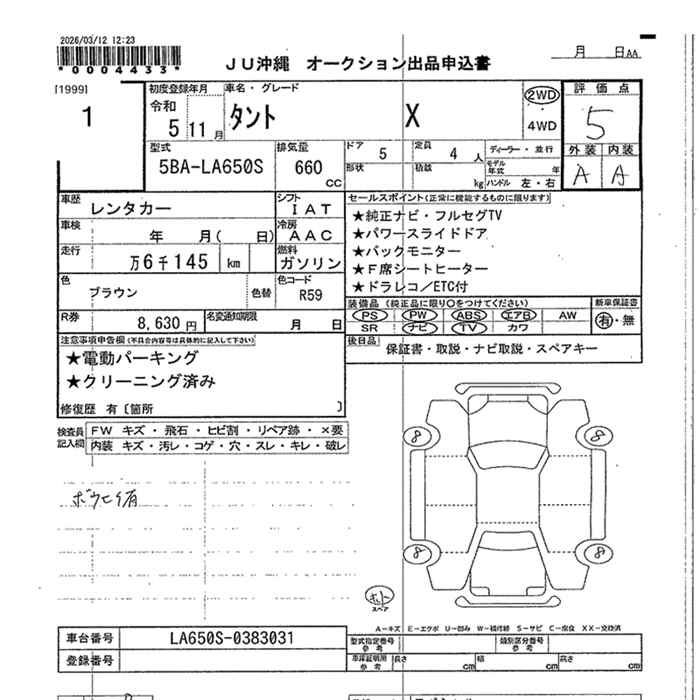 2026/03/12 12:23
*0004433*
JU沖縄 オークション出品申込書
月 日AA
[1999]
1
初度登録年月
令和
5 11月
車名・グレード
タント X
2WD
4WD
評価点
5
外装 内装
A A
型式
5BA-LA650S
排気量
660
CC
ドア
5
定員
4
人
形状
積載
kg
ディーラー・並行
モデル年式 年
ハンドル 左・右
車歴
レンタカー
シフト
IAT
車検
年 月( 日)
冷房
AAC
走行
万6千145 km
燃料
ガソリン
色
ブラウン
色替
色コード
R59
R券
8,630円
名変通知期限
月 日
セールスポイント(正常に機能するものに限ります)
★純正ナビ・フルセグTV
★パワースライドドア
★バックモニター
★F席シートヒーター
★ドラレコ/ETC付
装備品(純正品に限り○をつけてください)
PS PW ABS エアB AW
SR ナビ TV カワ
新車保証書
有・無
後日品
保証書・取説・ナビ取説・スペアキー
注意事項申告欄(不具合内容等は具体的に記入して下さい)
★電動パーキング
★クリーニング済み
修復歴 有〔箇所 〕
検査員記入欄
FW キズ・飛石・ヒビ割・リペア跡・×要
内装 キズ・汚レ・コゲ・穴・スレ・キレ・破レ
8 8
8 8
スペア
A-キズ E-エクボ U-凹み W-補修跡 S-サビ C-腐食 XX-交換済
車台番号
LA650S-0383031
登録番号
型式指定番号
参考
類別区分番号
参考
車庫証明用
参考
長さ cm
幅 cm
高さ cm